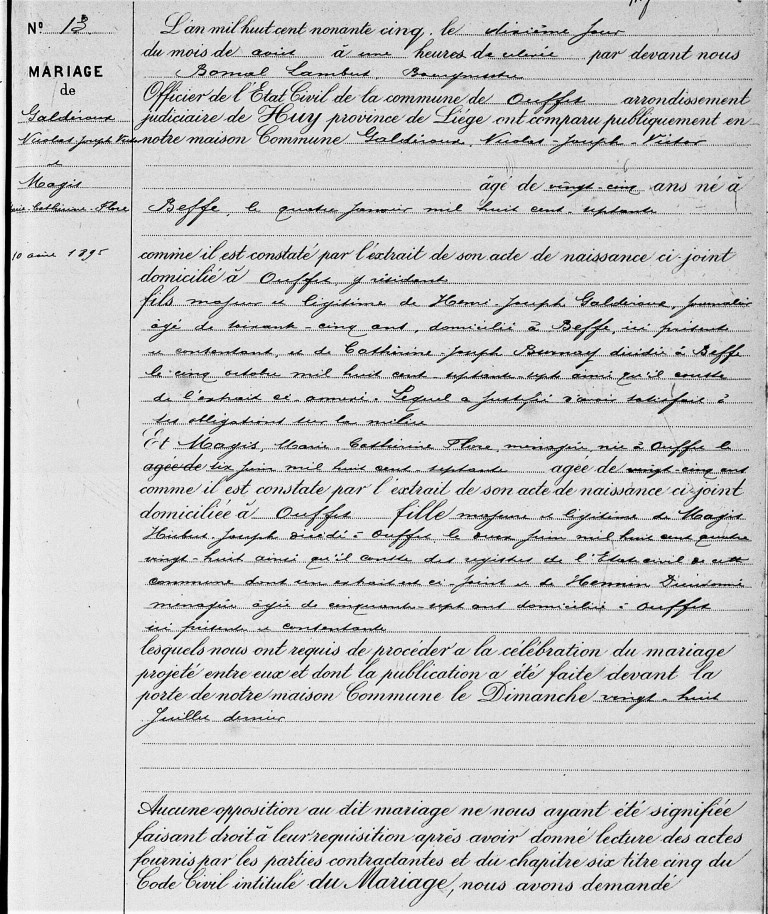 Nº 13
MARIAGE
de
Galdéroux
Nicolas Joseph Victor
et
Magis
Marie-Catherine-Flore
10 août 1895
L'an mil huit cent nonante cinq, le dixième jour
du mois de août à une heures de relevée par devant nous
Bomal Lambert, Bourgmestre
Officier de l'Etat Civil de la commune de Ouffet arrondissement
judiciaire de Huy province de Liége ont comparu publiquement en
notre maison Commune Galdéroux, Nicolas-Joseph-Victor
âgé de vingt-cinq ans né à
Beffe, le quatre janvier mil huit cent septante
comme il est constaté par l'extrait de son acte de naissance ci-joint
domicilié à Ouffet, y résidant
fils majeur et légitime de Henri-Joseph Galdéroux, journalier
âgé de soixante-cinq ans, domicilié à Beffe, ici présent
et consentant, et de Catherine-Joseph Burnay décédée à Beffe
le cinq octobre mil huit cent septante sept ainsi qu'il conste
de l'extrait ci-annexé. Lequel a justifié avoir satisfait à
ses obligations sur la milice
Et Magis, Marie-Catherine Flore, ménagère, née à Ouffet le
agée de six juin mil huit cent septante agée de vingt-cinq ans
comme il est constaté par l'extrait de son acte de naissance ci-joint
domiciliée à Ouffet fille majeure et légitime de Magis
Hubert-Joseph décédé à Ouffet le deux juin mil huit cent quatre
vingt-huit ainsi qu'il conste des registres de l'Etat civil de cette
commune dont un extrait est ci-joint et de Hennin Dieudonnée
ménagère agée de cinquante-sept ans domiciliée à Ouffet
ici présente et consentante
lesquels nous ont requis de procéder a la célébration du mariage
projeté entre eux et dont la publication a été faite devant la
porte de notre maison Commune le Dimanche vingt-huit
Juillet dernier
Aucune opposition au dit mariage ne nous ayant été signifiée
faisant droit à leur requisition après avoir donné lecture des actes
fournis par les parties contractantes et du chapitre six titre cinq du
Code Civil intitulé du Mariage, nous avons demandé